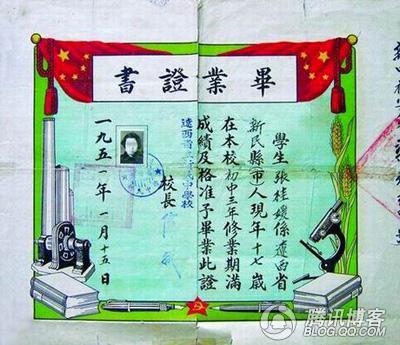 畢業證書
學生張桂媛係遼西省
新民縣市人現年十七歲
在本校初中三年修業期滿
成績及格准予畢業此證
遼西省
中學校
校長
一九五一年一月十五日
腾讯博客